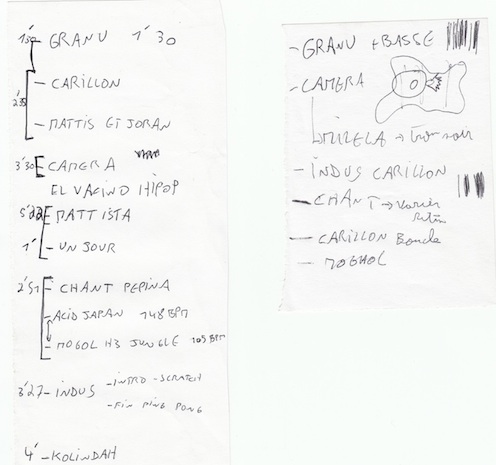 1'30 - GRANU 1'30
- CARILLON
2'35
- MATTIS ET JORAN
3'30 - CAMERA
EL VACINO HIPOP
5'23 - MATTISTA
1' - UN JOUR
2'51 - CHANT PEPINA
- ACID JAPAN 148 BPM
- MOGOL H3 JUNGLE 105 BPM
3'27 - INDUS - INTRO - SCRATCH
- FIN PING PONG
4' - KOLINDAH
- GRANU + BASSE
- CAMERA
MIRELA →
- INDUS CARILLON
- CHANT → varier
- CARILLON Boucle
- MOGHOL